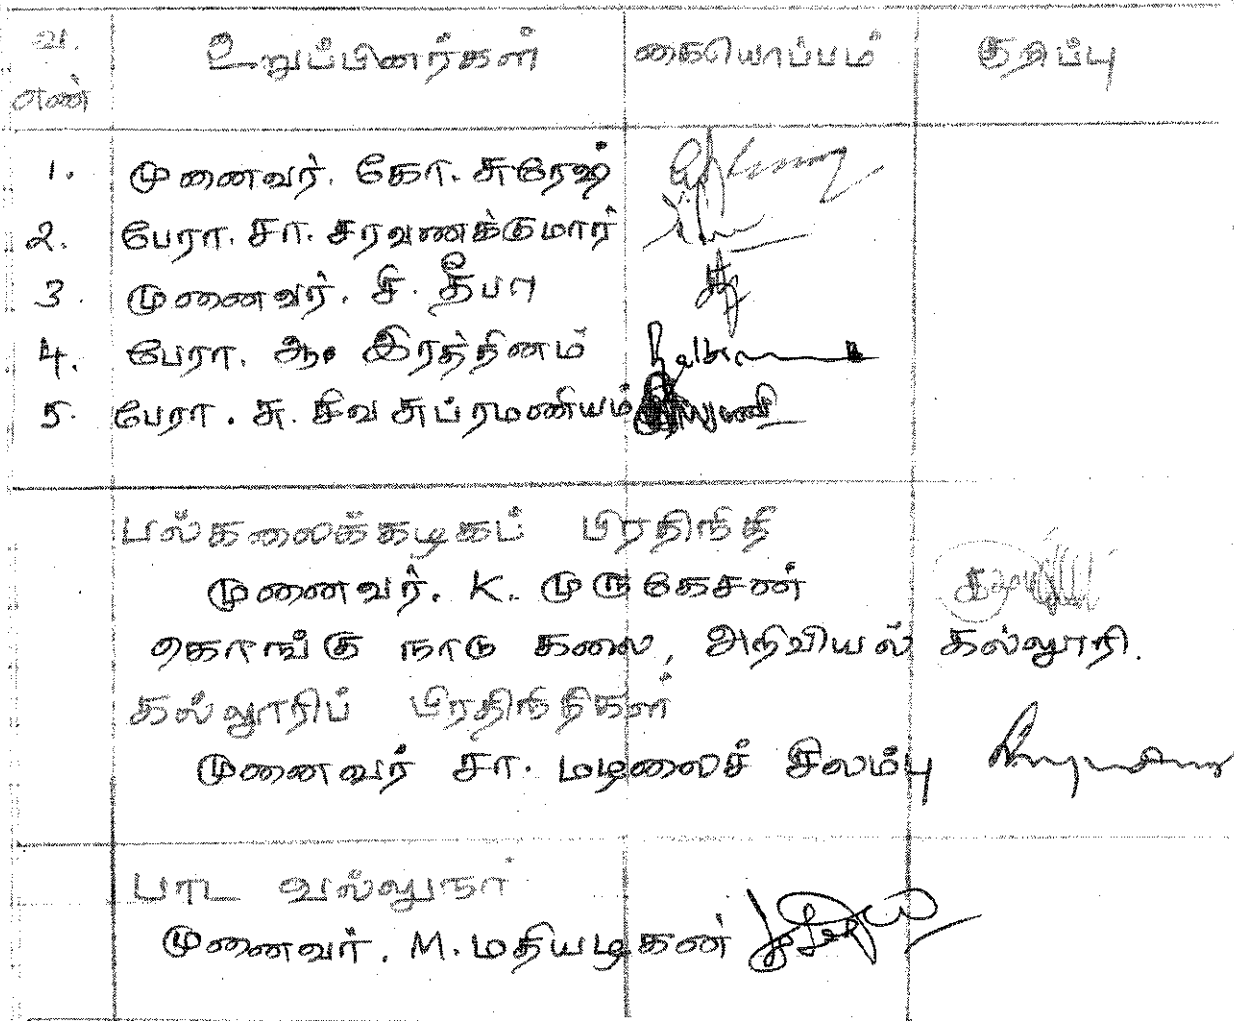 வ. எண் உறுப்பினர்கள் கையொப்பம் குறிப்பு
1. முனைவர். கோ. சுரேஷ்
2. பேரா. சா. சரவணக்குமார்
3. முனைவர். சி. தீபா
4. பேரா. ஆ. இரத்தினம்
5. பேரா. சு. சிவசுப்ரமணியம்
பல்கலைக்கழகப் பிரதிநிதி
முனைவர். K. முருகேசன்
கொங்கு நாடு கலை, அறிவியல் கல்லூரி.
கல்லூரிப் பிரதிநிதிகள்
முனைவர் சா. மழலைச் சிலம்பு
பாட வல்லுநர்
முனைவர். M. மதியழகன்